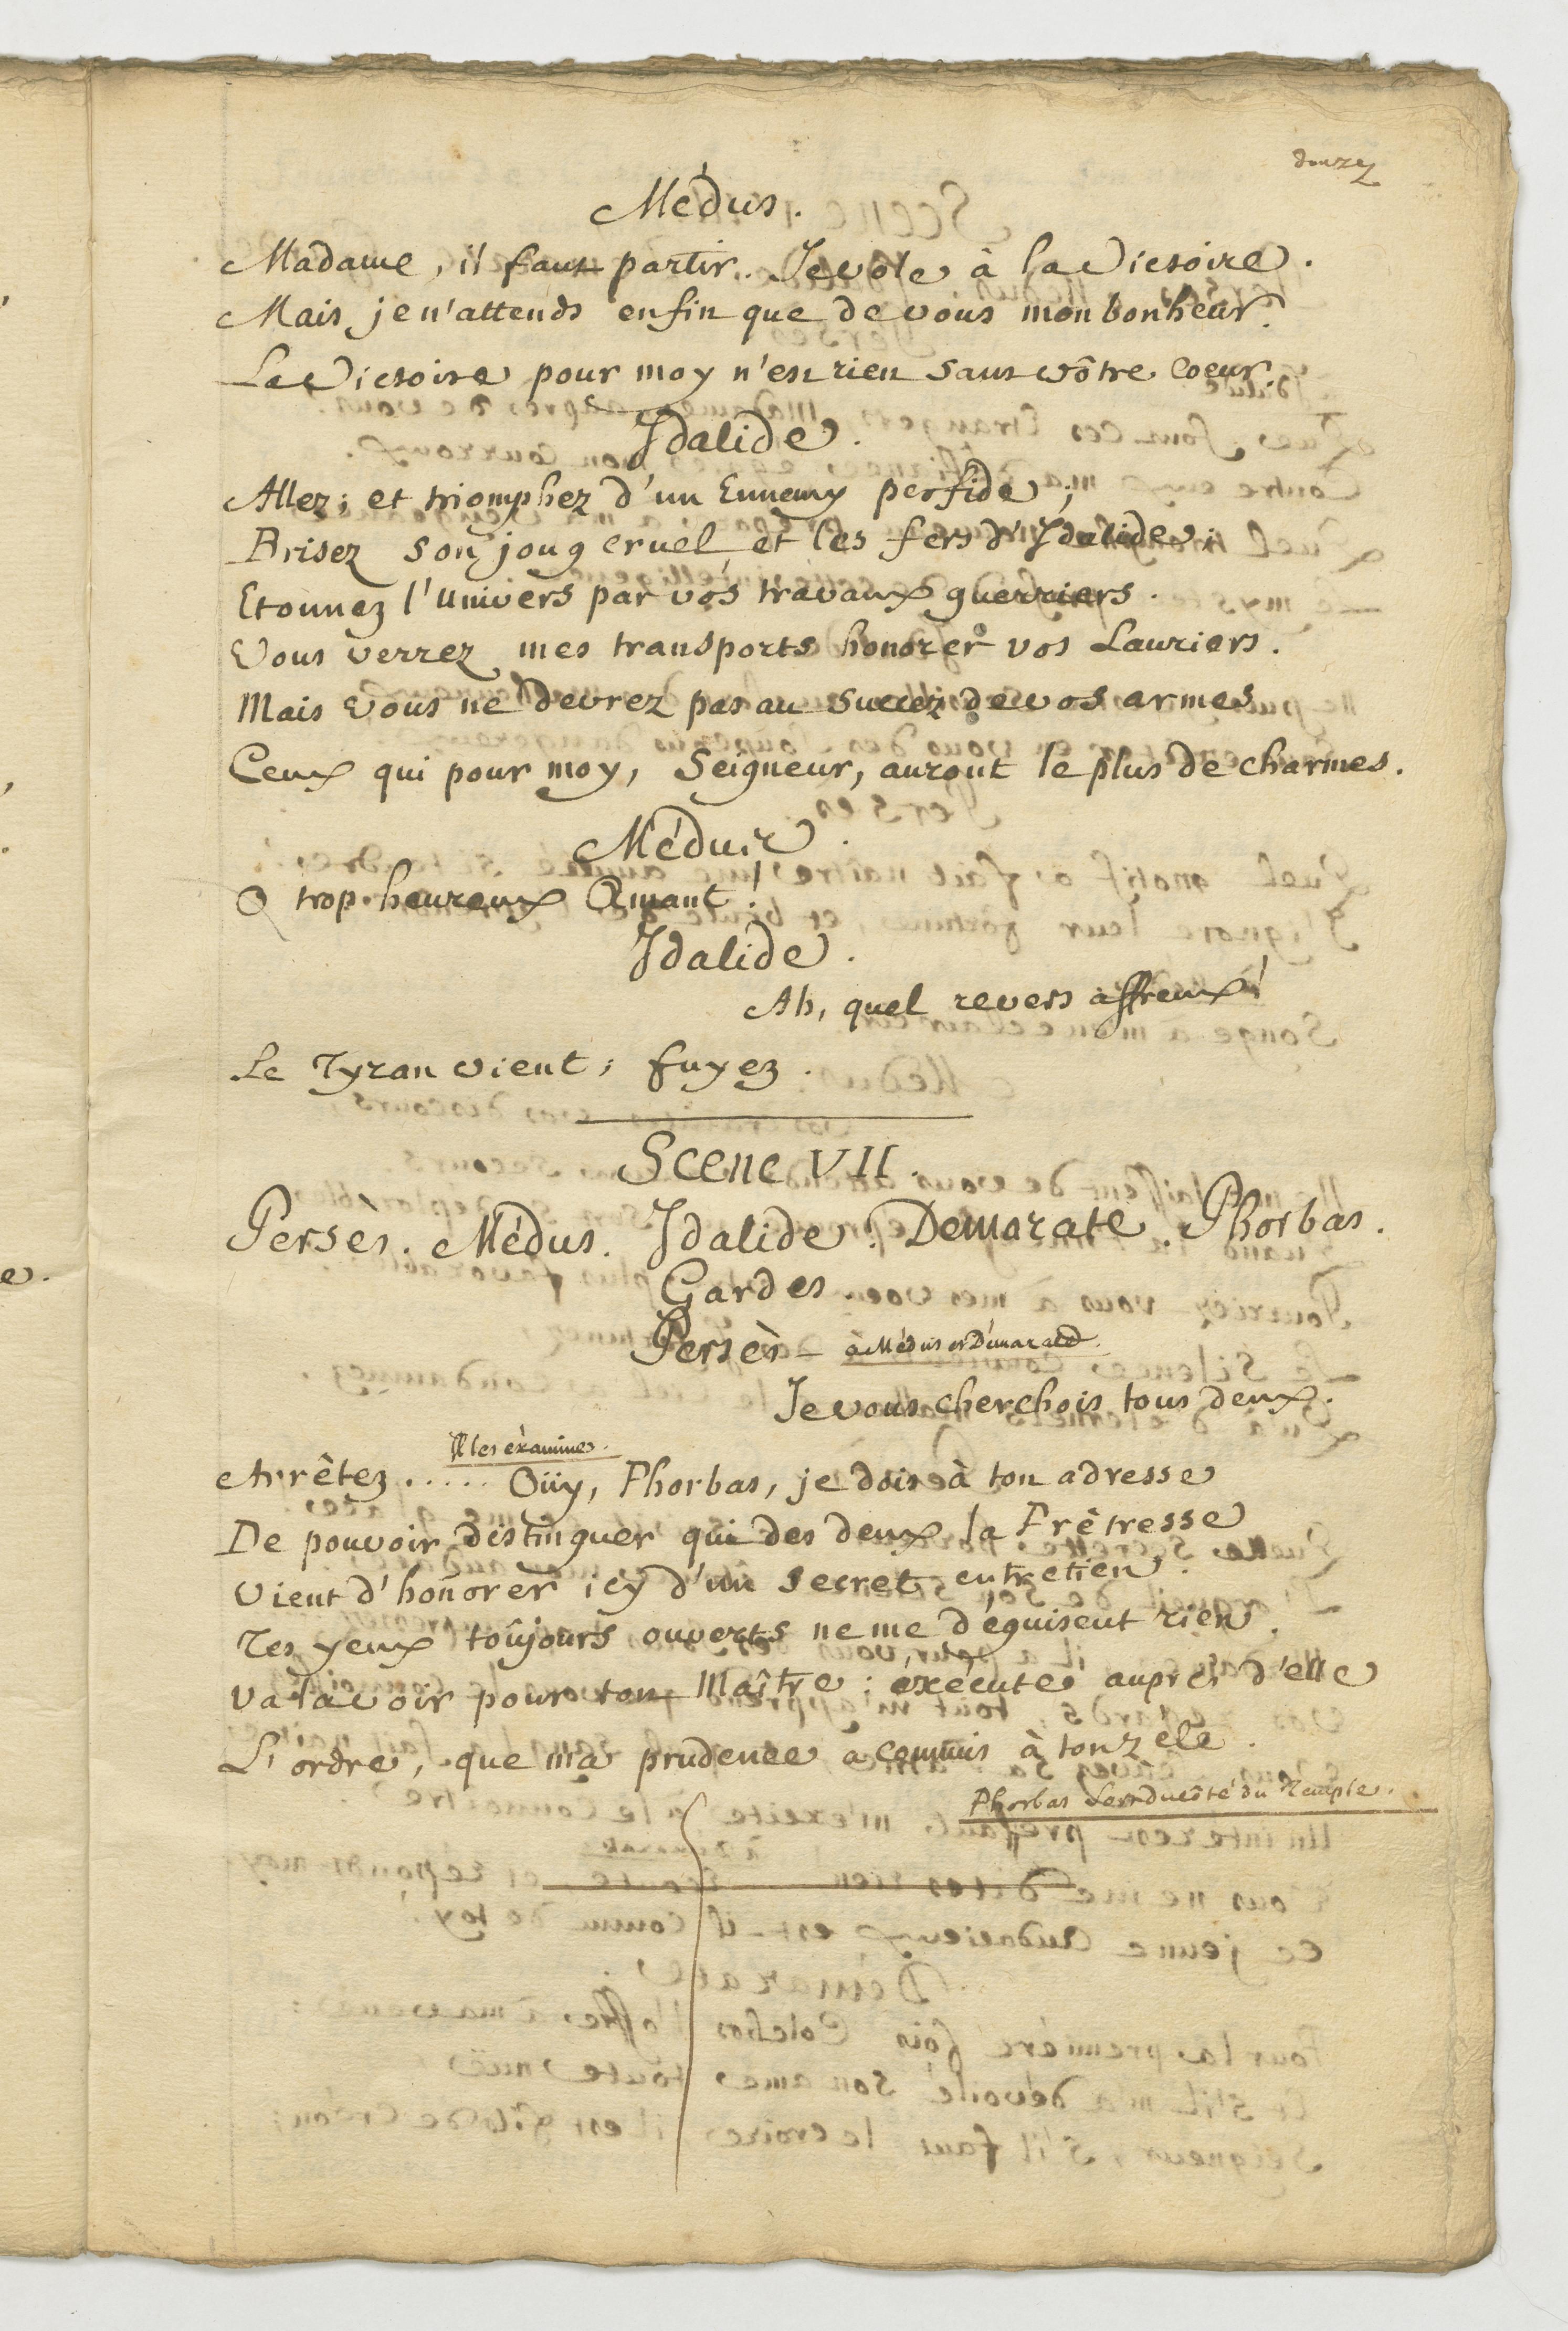 Médus.
Madame, il faut partir. Je vole à la Victoire.
Mais je n'attends enfin que de vous mon bonheur.
La Victoire pour moy n'est rien sans vôtre Coeur.
Idalide.
Allez; et triomphez d'un Ennemy perfide;
Brisez son joug cruel, et les fers d'Idalide;
Etonnez l'Univers par vos travaux guerriers.
Vous verrez mes transports honorer vos Lauriers.
Mais vous ne devrez pas au succez de vos armes
Ceux qui pour moy, Seigneur, auront le plus de charmes.
Médus.
O trop heureux Amant!
Idalide.
Ah, quel revers affreux!
Le Tyran vient; fuyez.
Scene VII.
Persès. Médus. Idalide. Demarate. Phorbas.
Gardes.
Persès à Médus et Démarate.
Je vous cherchois tous deux.
Il les éxamine.
Arrêtez..... Oüy, Phorbas, je dois à ton adresse
De pouvoir distinguer qui des deux la Prêtresse
Vient d'honorer icy d'un secret entretien.
Tes yeux toûjours ouverts ne me déguisent rien.
Va la voir pour ton Maître; éxécute auprès d'elle
L'ordre, que ma prudence a commis à ton zele.
Phorbas sort du côté du Temple.